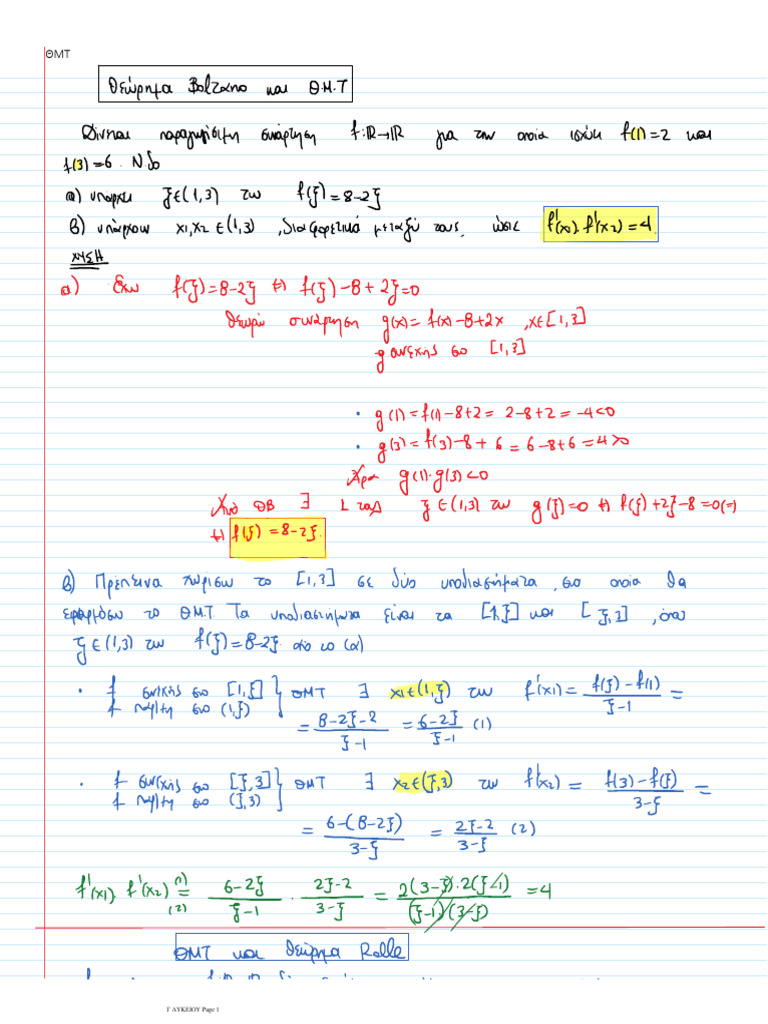 ΘΜΤ
Θεώρημα Bolzano και Θ.Μ.Τ
Δίνεται παραγωγίσιμη συνάρτηση f:ℝ→ℝ για την οποία ισχύει f(1)=2 και
f(3)=6. Νδο
α) υπάρχει ξ∈(1,3) τω f(ξ)=8-2ξ
β) υπάρχουν x1,x2 ∈(1,3), διαφορετικά μεταξύ τους, ώστε f'(x1).f'(x2)=4.
ΛΥΣΗ
α) Έχω f(ξ)=8-2ξ ⇔ f(ξ)-8+2ξ=0
Θεωρώ συνάρτηση g(x)=f(x)-8+2x, x∈[1,3]
g συνεχής στο [1,3]
• g(1)=f(1)-8+2= 2-8+2=-4<0
• g(3)=f(3)-8+6=6-8+6=4>0
Άρα g(1).g(3)<0
Από ΘΒ ∃ 1 τουλ ξ∈(1,3) τω g(ξ)=0 ⇔ f(ξ)+2ξ-8=0 ⇔
⇔ f(ξ)=8-2ξ.
β) Πρέπει να χωρίσω το [1,3] σε δύο υποδιαστήματα, στο οποία θα
εφαρμόσω το Θ.Μ.Τ. Τα υποδιαστήματα είναι τα [1,ξ] και [ξ,3], όπου
ξ∈(1,3) τω f(ξ)=8-2ξ από το (α)
• f συνεχής στο [1,ξ] } ΘΜΤ ∃ x1∈(1,ξ) τω f'(x1)= (f(ξ)-f(1))/(ξ-1) =
f παρ/μη στο (1,ξ) = (8-2ξ-2)/(ξ-1) = (6-2ξ)/(ξ-1) (1)
• f συνεχής στο [ξ,3] } ΘΜΤ ∃ x2∈(ξ,3) τω f'(x2) = (f(3)-f(ξ))/(3-ξ) =
f παρ/μη στο (ξ,3)
= (6-(8-2ξ))/(3-ξ) = (2ξ-2)/(3-ξ) (2)
f'(x1).f'(x2) (1)=(2) (6-2ξ)/(ξ-1) · (2ξ-2)/(3-ξ) = (2(3-ξ).2(ξ-1))/((ξ-1)(3-ξ)) =4
ΘΜΤ και Θεώρημα Rolle
Γ ΛΥΚΕΙΟΥ Page 1